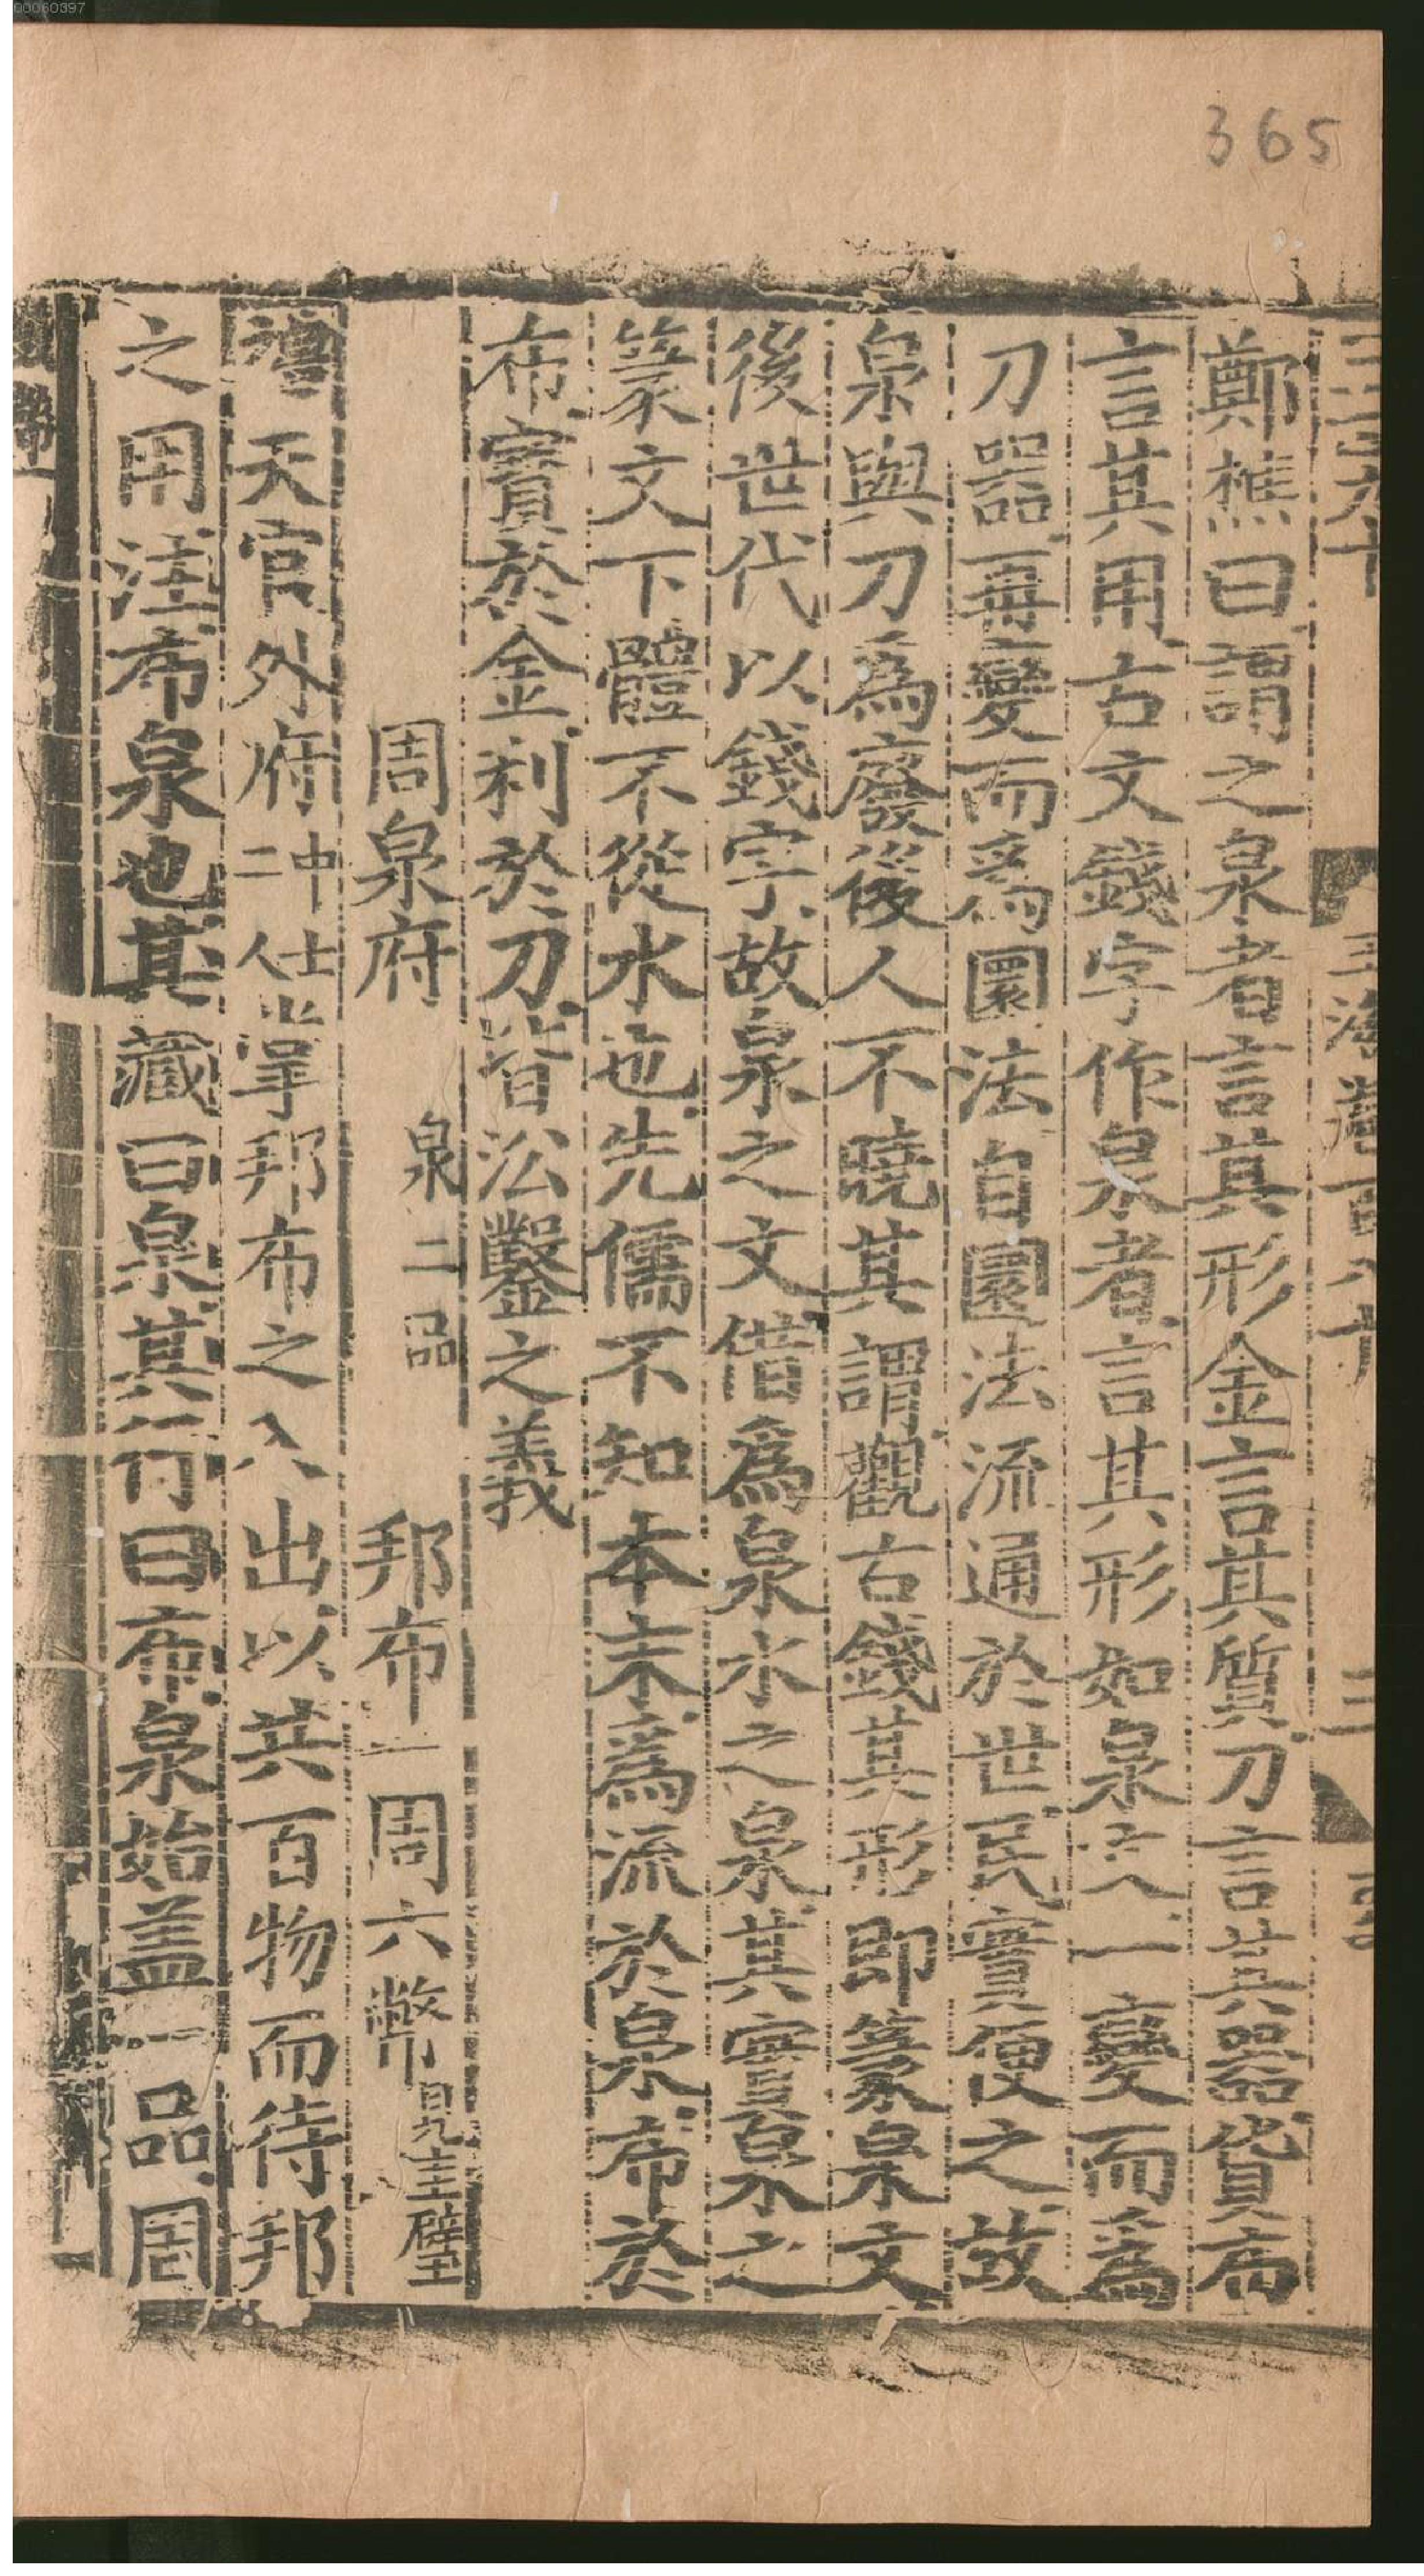 00060397
365
三百九十
玉海卷百八十
三
鄭樵曰謂之泉者言其形金言其質刀言其器貨布
言其用古文錢字作泉者言其形如泉文一變而爲
刀器再變而爲圜法自圜法流通於世民實便之故
泉與刀爲廢後人不曉其謂觀古錢其形即篆泉文
後世代以錢字故泉之文借爲泉水之泉其實泉之
篆文下體不從水也先儒不知本末爲流於泉布於
布寶於金利於刀皆㳂鑿之義
周泉府 泉二品 邦布 周六幣 自九圭璧
禮天官外府中士二人掌邦布之入出以共百物而待邦
之用注布泉也其藏曰泉其行曰布泉始蓋一品周